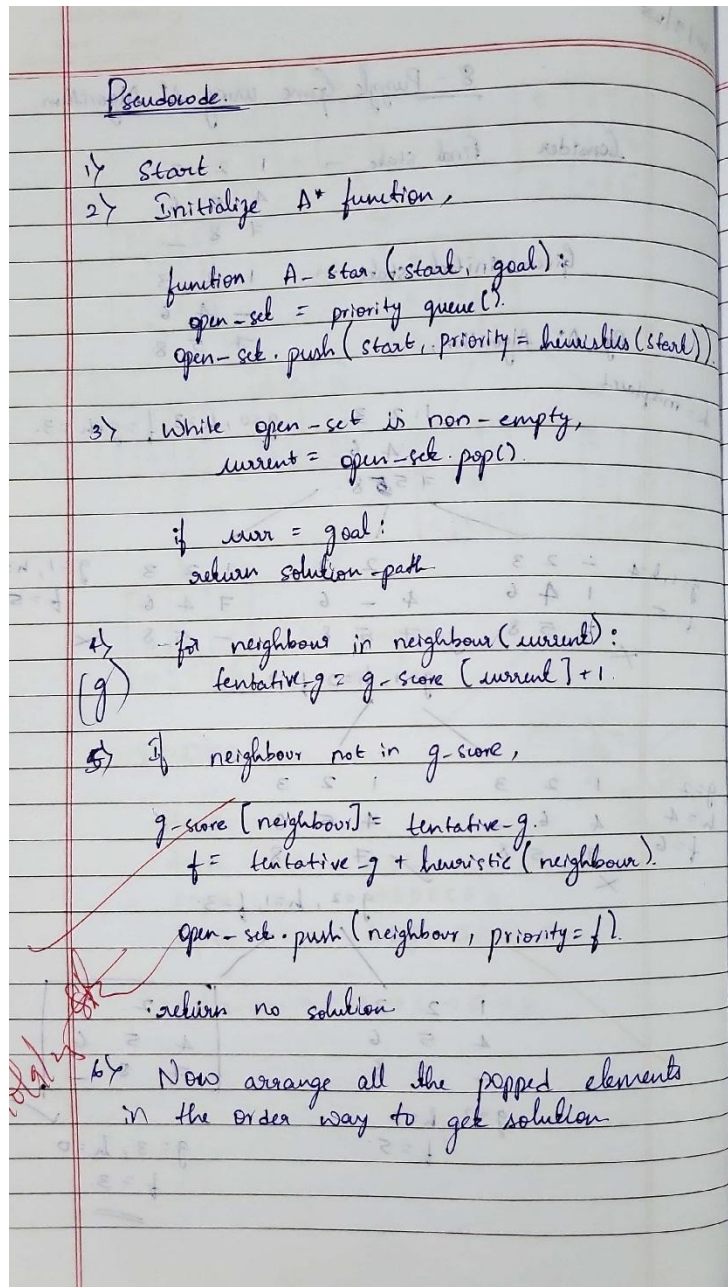 Pseudocode.
1) Start.
2) Initialize A* function,
function A-star.(start, goal):
open-set = priority queue().
open-set.push(start, priority = heuristics(start)).
3) While open-set is non-empty,
current = open-set.pop().
if curr = goal:
return solution-path
4) for neighbour in neighbour(current):
(g) tentative-g = g-score[current]+1.
5) If neighbour not in g-score,
g-score[neighbour] = tentative-g.
f = tentative-g + heuristic(neighbour).
open-set.push(neighbour, priority = f).
return no solution
6) Now arrange all the popped elements
in the order way to get solution